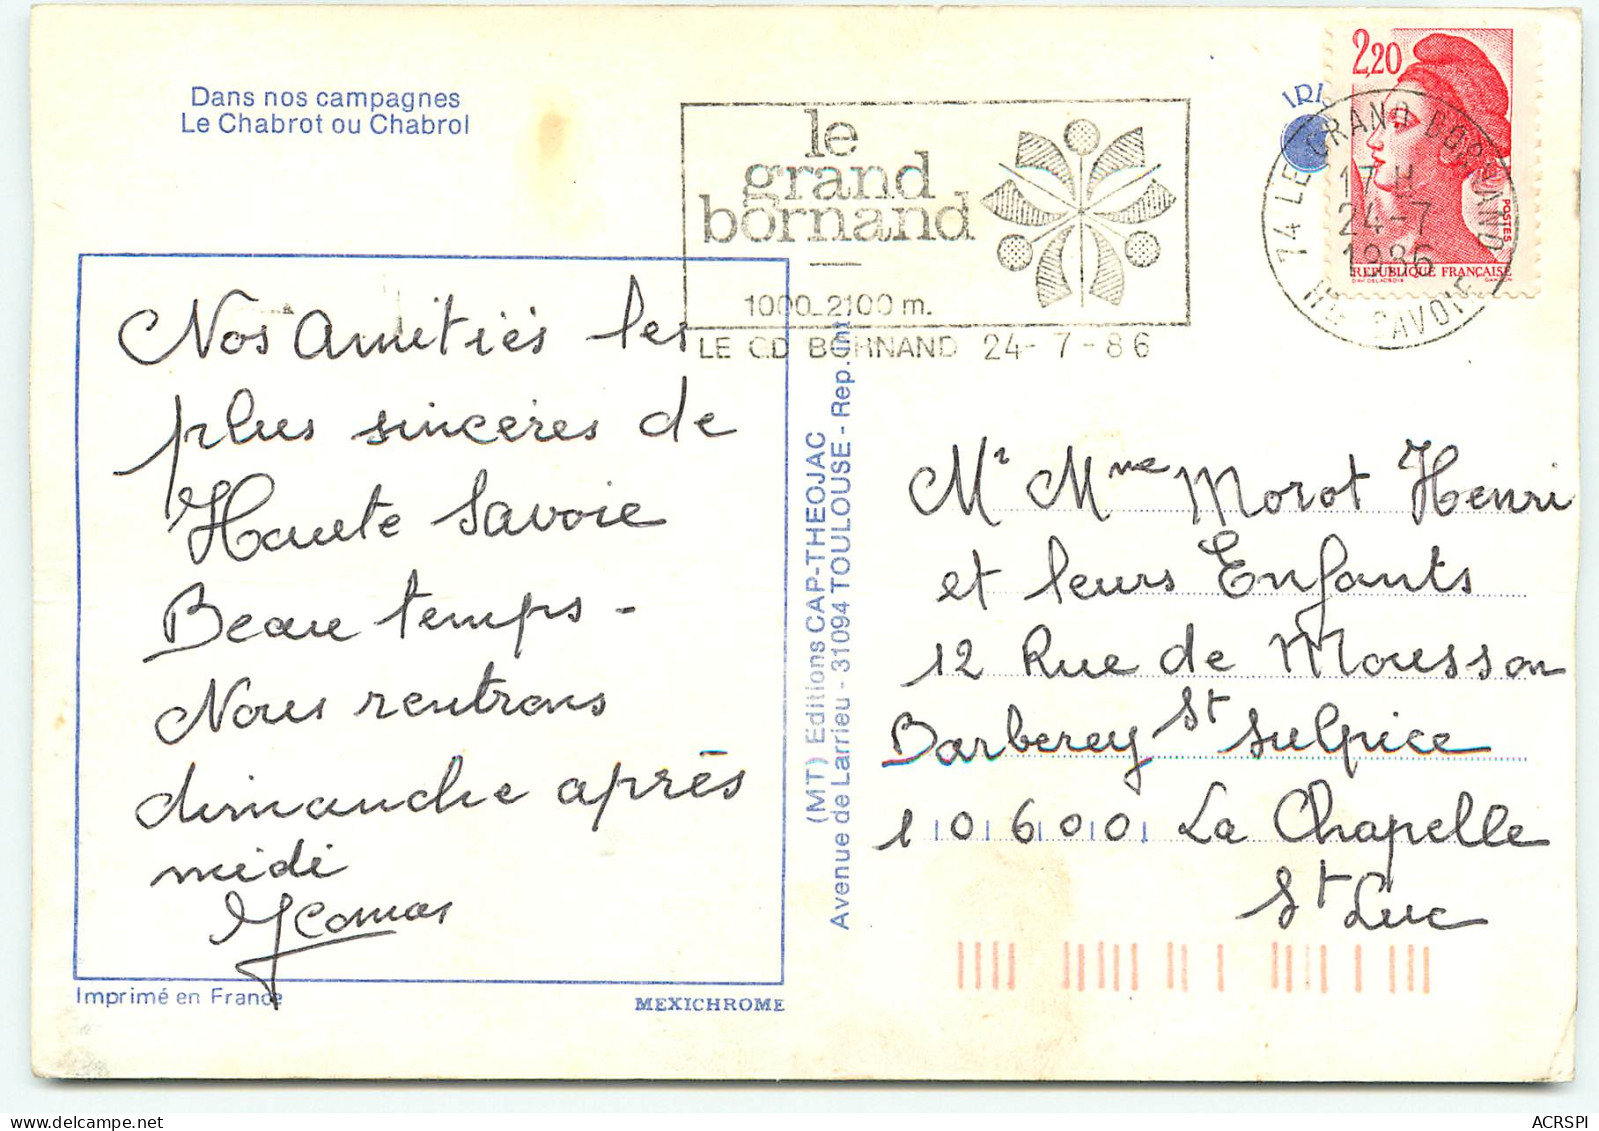 Dans nos campagnes
Le Chabrot ou Chabrol
le
grand
bornand
1000-2100 m.
LE GD BORNAND 24-7-86
IRIS
2,20
POSTES
REPUBLIQUE FRANÇAISE
74 LE GRAND BORNAND
17 H
24-7
1986
Hte SAVOIE
Nos Amitiés les
plus sincères de
Haute Savoie
Beau temps -
Nous rentrons
dimanche après
midi
(MT) Editions CAP-THEOJAC
Avenue de Larrieu - 31094 TOULOUSE - Rep. int
Mr Mme Morot Henri
et leurs Enfants
12 Rue de Mousson
Barberey St Sulpice
10600 La Chapelle
St Luc
Imprimé en France
MEXICHROME
ACRSPI